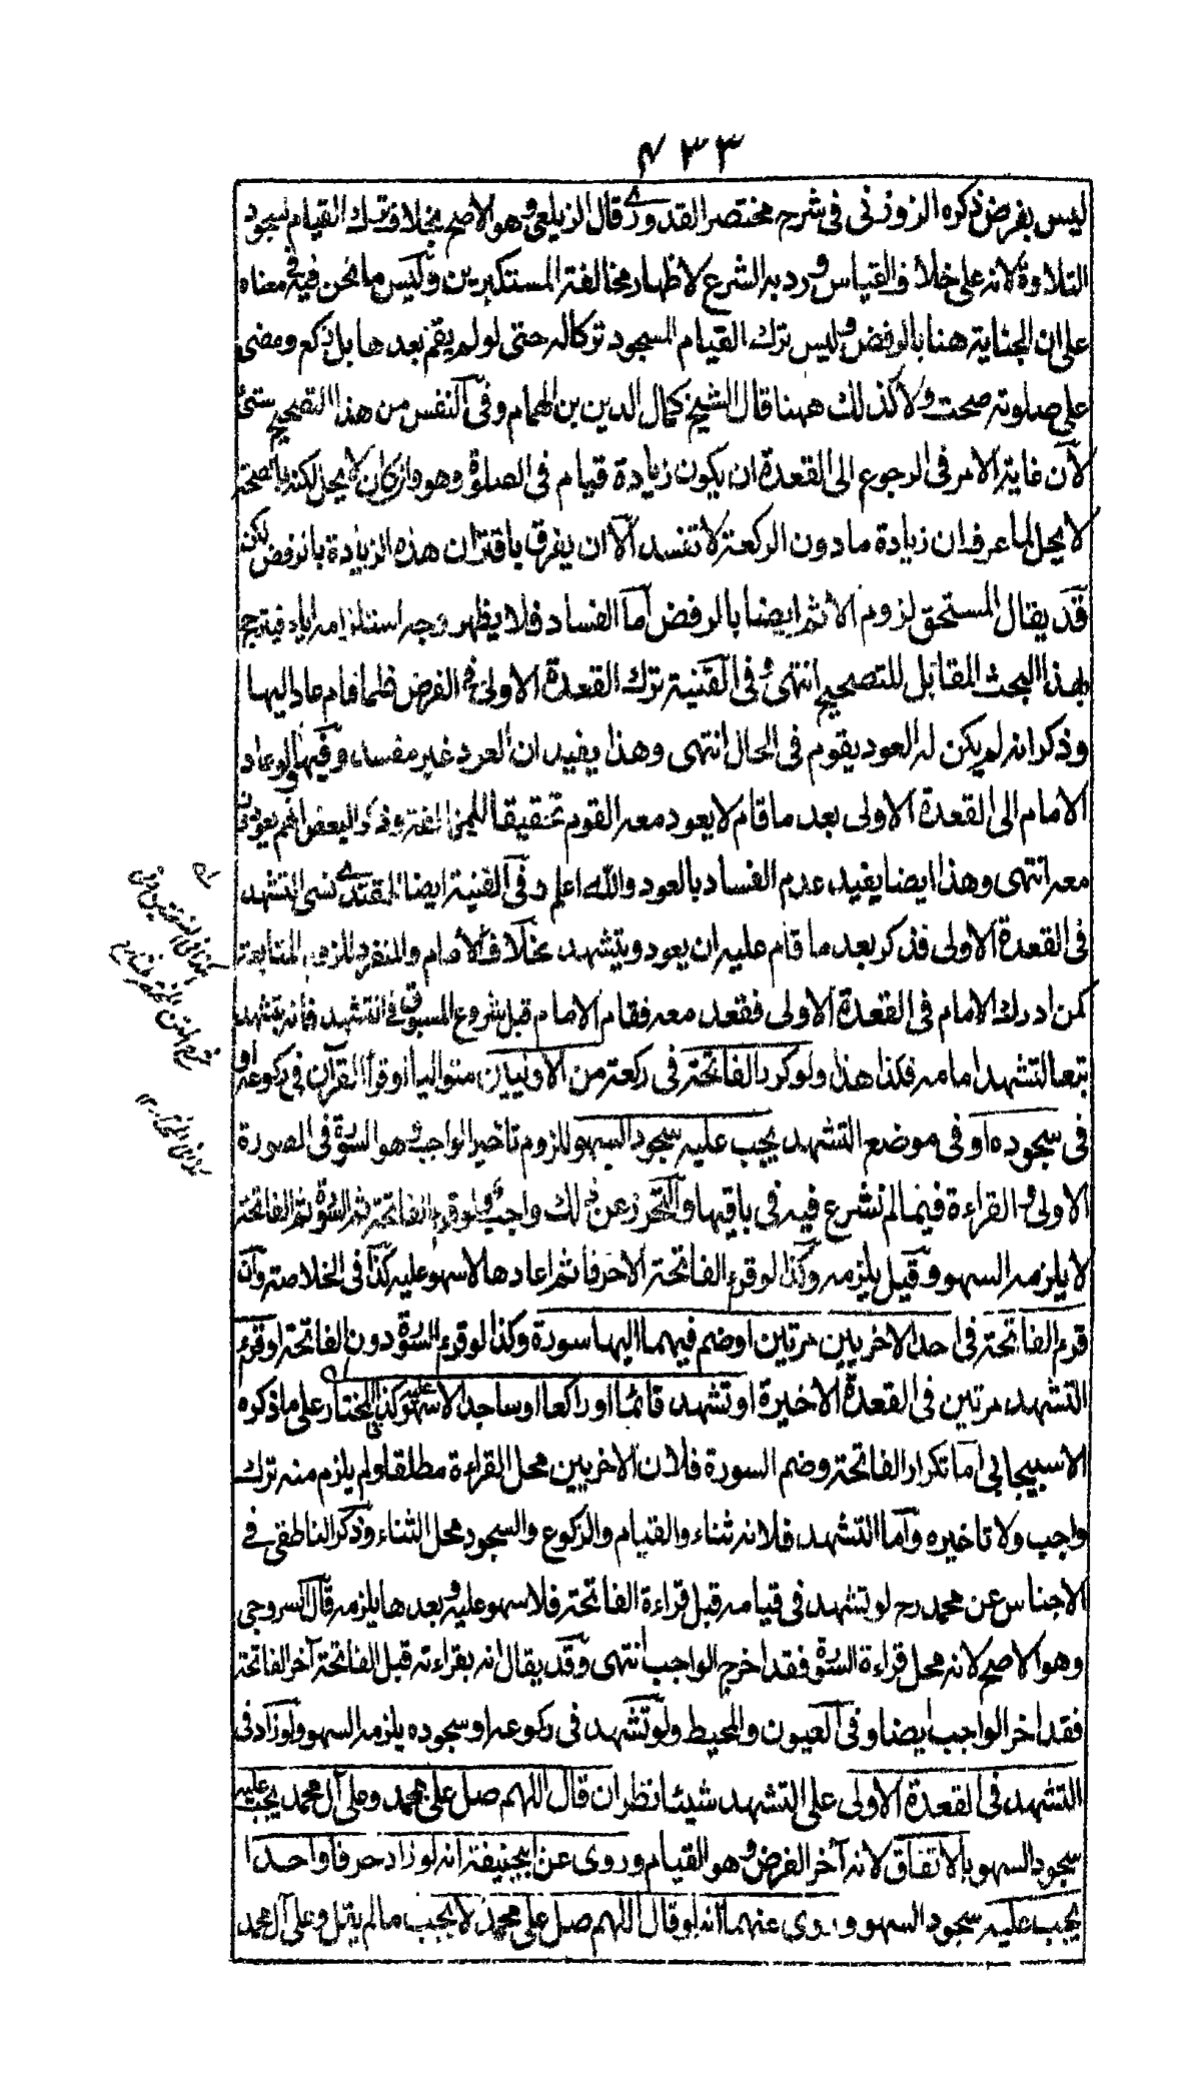 ٤٣٣
ليس بفرض ذكره الزوزنى فى شرح مختصر القدورى قال الزيلعى وهو الاصح بخلاف ترك القيام لسجود
التلاوة لانه على خلاف القياس ورد به الشرع لاظهار مخالفة المستكبرين وليس ما نحن فيه فى معناه
على ان الجناية هنا بالرفض وليس ترك القيام للسجود تركا له حتى لو لم يقم بعدها بل ركع ومضى
على صلوته صحت ولا كذلك ههنا قال الشيخ كمال الدين بن الهمام وفى النفس من هذا التصحيح شئ
لان غاية الامر فى الرجوع الى القعدة ان يكون زيادة قيام فى الصلوة وهو وان كان لا يحل لكنه بالصحة
لا يخل لما عرف ان زيادة ما دون الركعة لا تفسد الا ان يفرق باقتران هذه الزيادة بالرفض لكن
قد يقال المستحق لزوم الاثم ايضا بالرفض اما الفساد فلا يظهر وجه استلزامه اياه فيترجح
بهذا البحث المقابل للتصحيح انتهى وفى القنية ترك القعدة الاولى فى الفرض فلما قام عاد اليها
وذكر انه لم يكن له العود يقوم فى الحال انتهى وهذا يفيد ان العود غير مفسد وفيها لو عاد
الامام الى القعدة الاولى بعد ما قام لا يعود معه القوم تحقيقا للمخالفة وذكر البعض انهم يعودون
معه انتهى وهذا ايضا يفيد عدم الفساد بالعود والله اعلم وفى القنية ايضا المقتدى نسى التشهد
فى القعدة الاولى فذكر بعد ما قام عليه ان يعود ويتشهد بخلاف الامام والمنفرد للزوم المتابعة
كمن ادرك الامام فى القعدة الاولى فقعد معه فقام الامام قبل شروع المسبوق فى التشهد فانه يتشهد
تبعا لتشهد امامه فكذا هذا ولو كرر الفاتحة فى ركعة من الاوليين متواليا او قرأ القرآن فى ركوعه او
فى سجوده او فى موضع التشهد يجب عليه سجود السهو للزوم تاخير الواجب وهو السورة فى الصورة
الاولى والقراءة فيما لم تشرع فيه فى باقيها والتحرز عن ذلك واجب ولو قرء الفاتحة ثم السورة ثم الفاتحة
لا يلزمه السهو وقيل يلزمه وكذا لو قرء الفاتحة الا حرفا ثم اعادها لا سهو عليه كذا فى الخلاصة وان
قرء الفاتحة فى احد الاخريين مرتين او ضم فيهما اليها سورة وكذا لو قرء السورة دون الفاتحة او قرء
التشهد مرتين فى القعدة الاخيرة او تشهد قائما او راكعا او ساجدا لا سهو عليه كذا المختار على ما ذكره
الاسبيجابى اما تكرار الفاتحة وضم السورة فلان الاخريين محل القراءة مطلقا ولم يلزم منه ترك
واجب ولا تاخيره واما التشهد فلانه ثناء والقيام والركوع والسجود محل الثناء وذكر الناطفى فى
الاجناس عن محمد رح لو تشهد فى قيامه قبل قراءة الفاتحة فلا سهو عليه وبعدها يلزمه قال السروجى
وهو الاصح لانه محل قراءة السورة فقد اخرج الواجب انتهى وقد يقال انه بقراءته قبل الفاتحة آخر الفاتحة
فقد اخر الواجب ايضا وفى العيون والمحيط ولو تشهد فى ركوعه او سجوده يلزمه السهو ولو زاد فى
التشهد فى القعدة الاولى على التشهد شيئا نظر ان قال اللهم صل على محمد وعلى آل محمد يجب عليه
سجود السهو بالاتفاق لانه آخر الفرض وهو القيام وروى عن ابيحنيفة انه لو زاد حرفا واحدا
يجب عليه سجود السهو وروى عنهما انه لو قال اللهم صل على محمد لا يجب ما لم يقل وعلى آل محمد